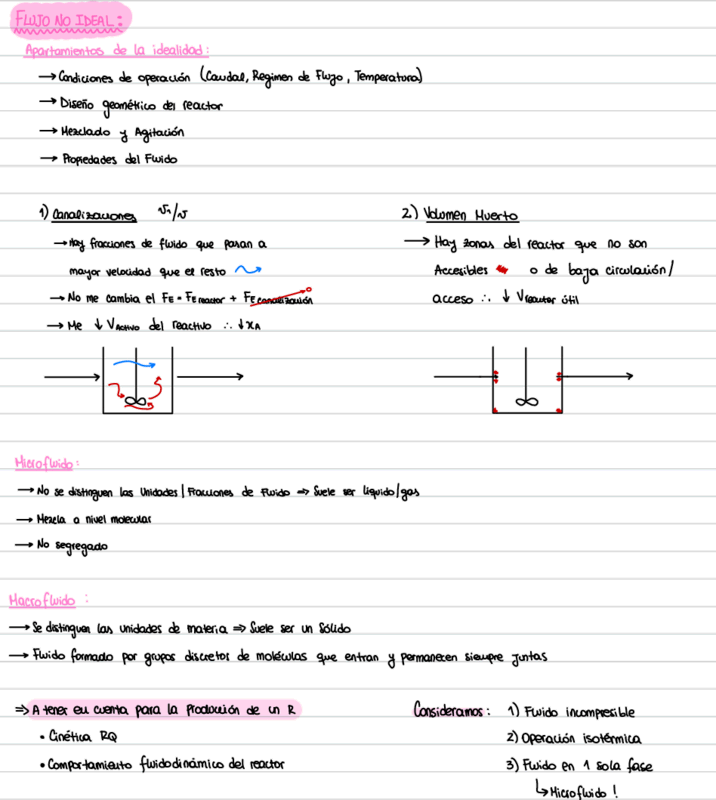 FLUJO NO IDEAL:
Apartamientos de la idealidad:
→ Condiciones de operación (Caudal, Regimen de Flujo, Temperatura)
→ Diseño geométrico del reactor
→ Mezclado y Agitación
→ Propiedades del Fluido
1) Canalizaciones v₁/v
→ Hay fracciones de fluido que pasan a
mayor velocidad que el resto
→ No me cambia el FE = FE reactor + FE canalización 0
→ Me ↓ VActivo del reactivo ∴ ↓ xA
2) Volumen Muerto
→ Hay zonas del reactor que no son
Accesibles o de baja circulación/
acceso ∴ ↓ Vreactor útil
Microfluido:
→ No se distinguen las Unidades/Fracciones de Fluido ⇒ Suele ser líquido/gas
→ Mezcla a nivel molecular
→ No segregado
Macrofluido:
→ Se distinguen las unidades de materia ⇒ Suele ser un Sólido
→ Fluido formado por grupos discretos de moléculas que entran y permanecen siempre Juntas
⇒ A tener en cuenta para la Producción de un R
• Cinética RQ
• Comportamiento fluidodinámico del reactor
Consideramos: 1) Fluido incompresible
2) Operación isotérmica
3) Fluido en 1 sola fase
↳ Microfluido!